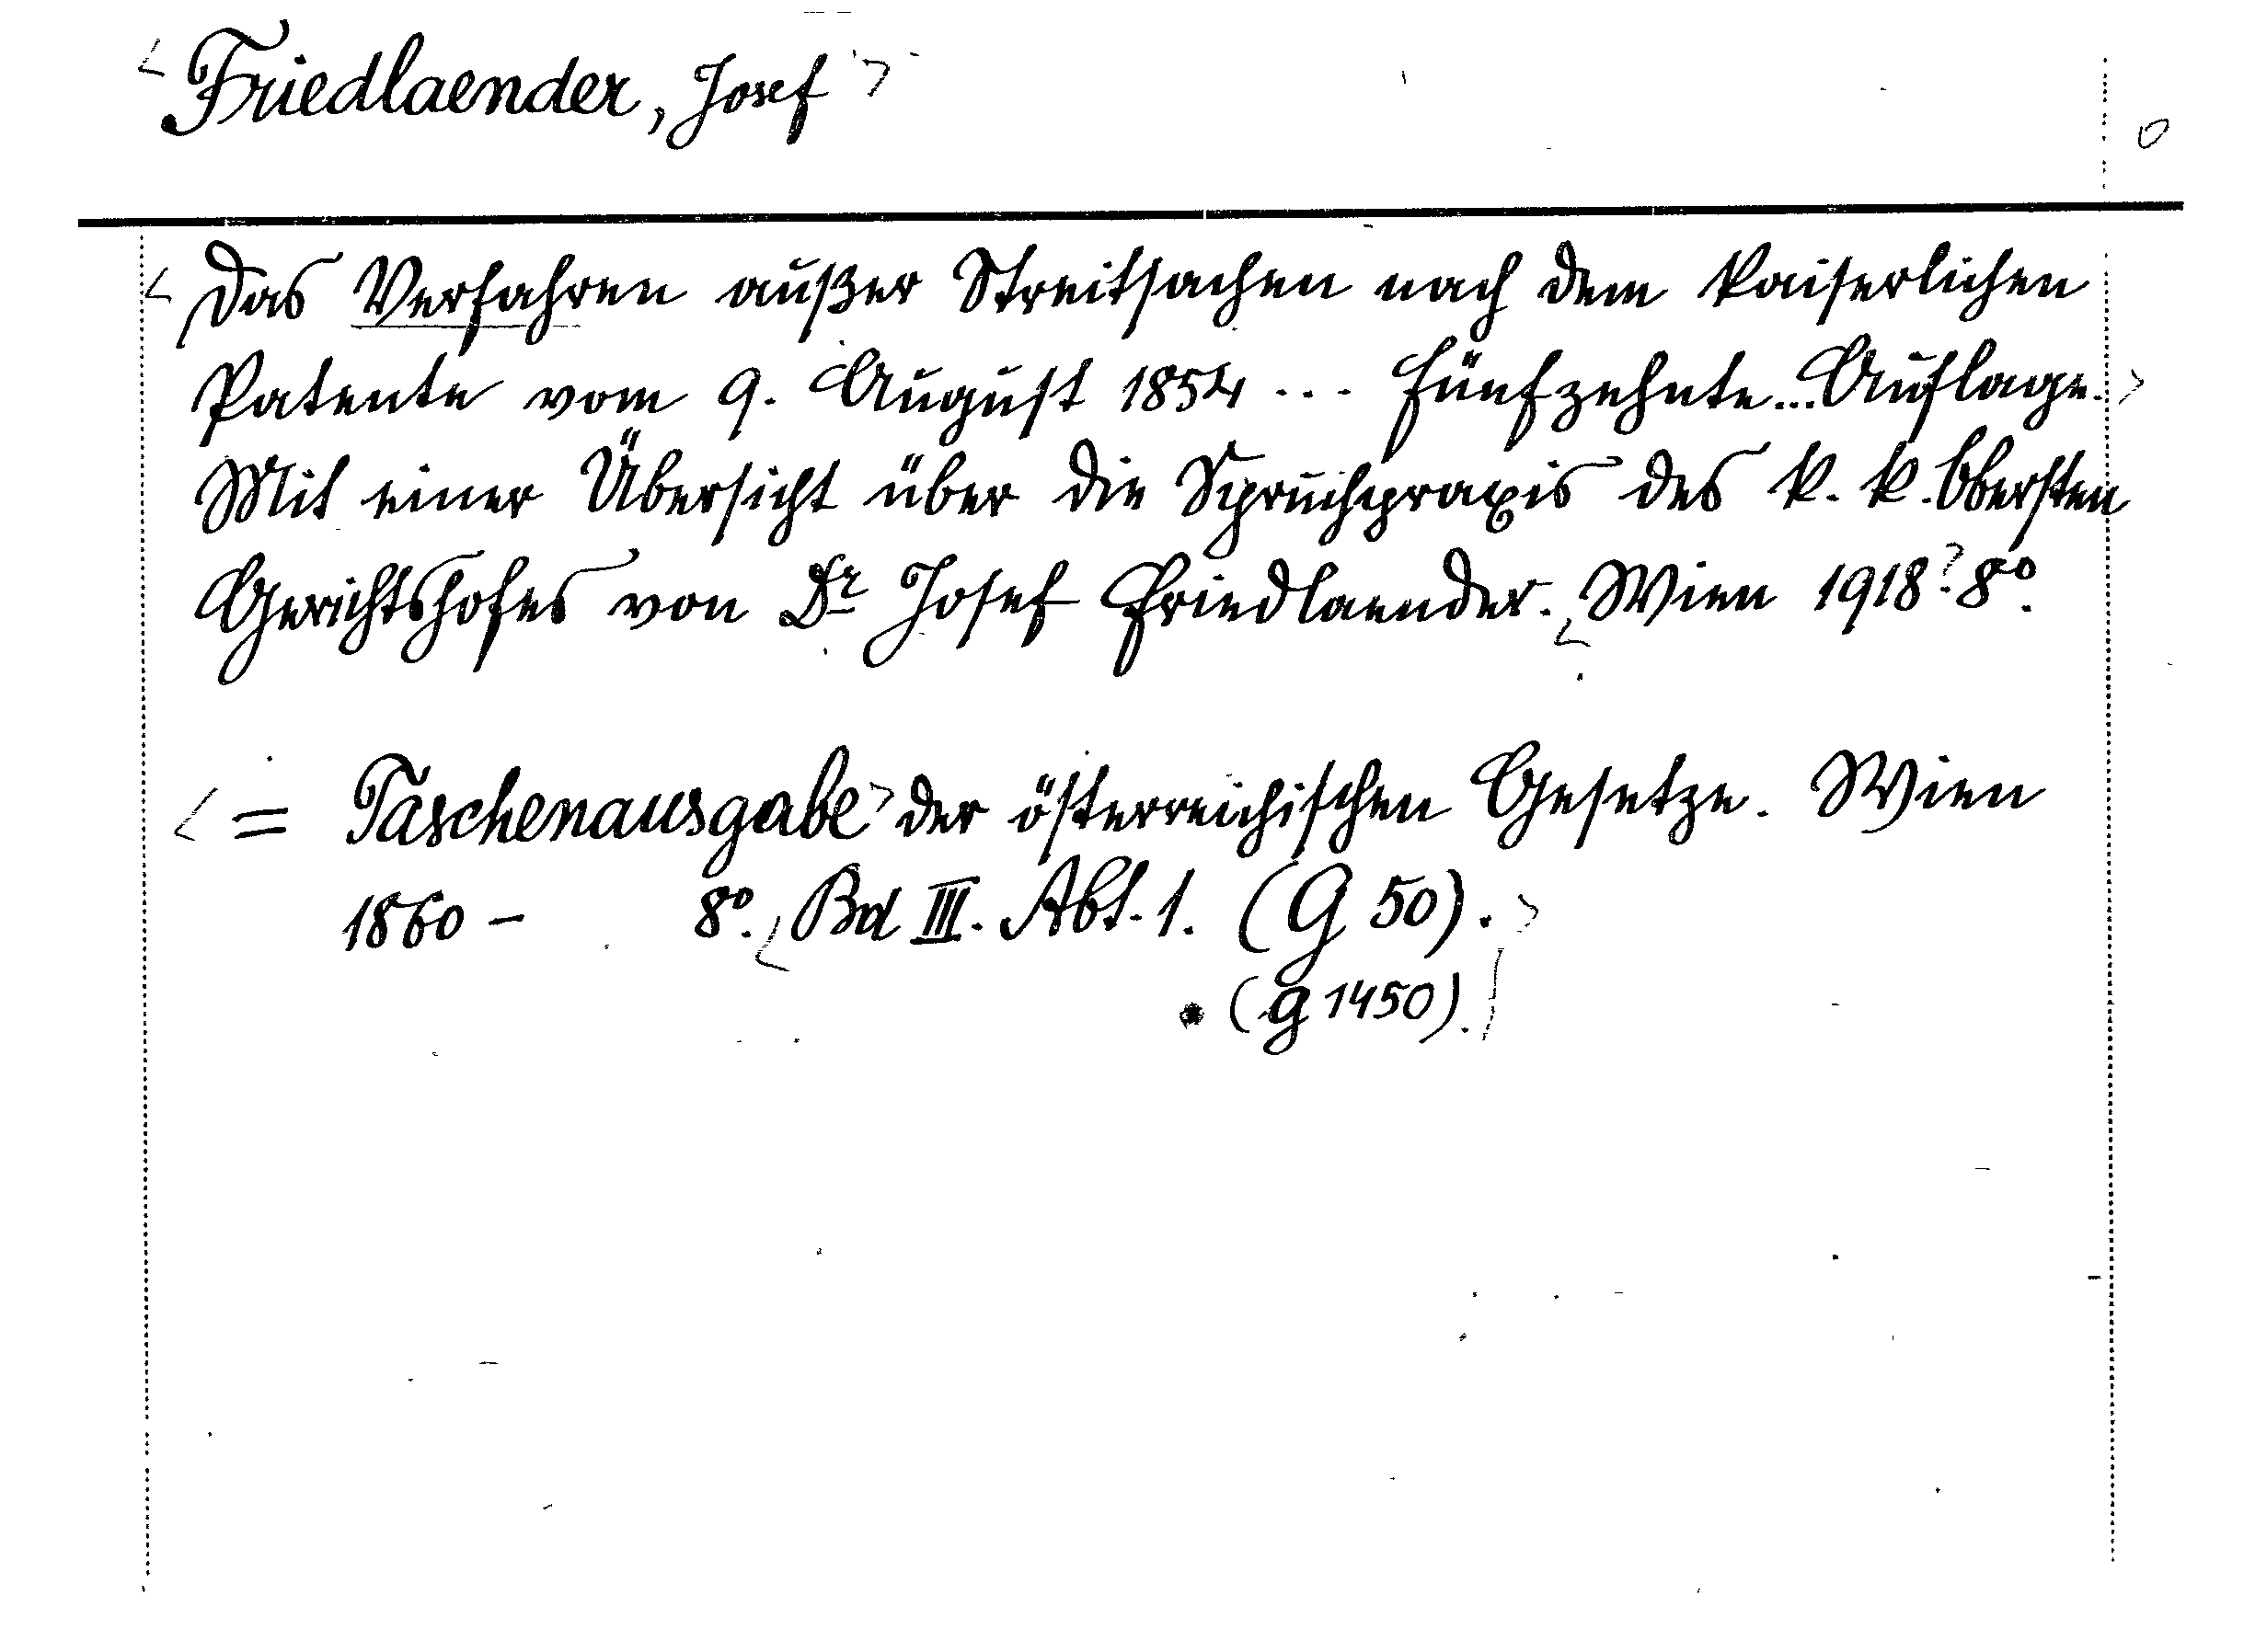 <Friedlaender, Josef>
<Das Verfahren außer Streitsachen nach dem kaiserlichen
Patente vom 9. August 1854 ... Fünfzehnte ... Auflage.>
Mit einer Übersicht über die Spruchpraxis des k. k. Obersten
Gerichtshofes von Dr Josef Friedlaender. <Wien 1918> 8º.
<= Taschenausgabe> der österreichischen Gesetze. Wien
1860 – 8º. <Bd III. Abt. 1. (G 50).>
(g 1450).